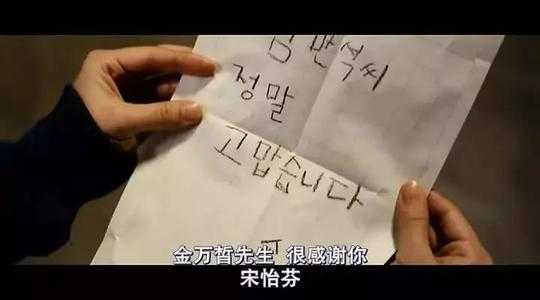 김만석씨
정말
고맙습니다
金万哲先生 很感谢你
宋怡芬